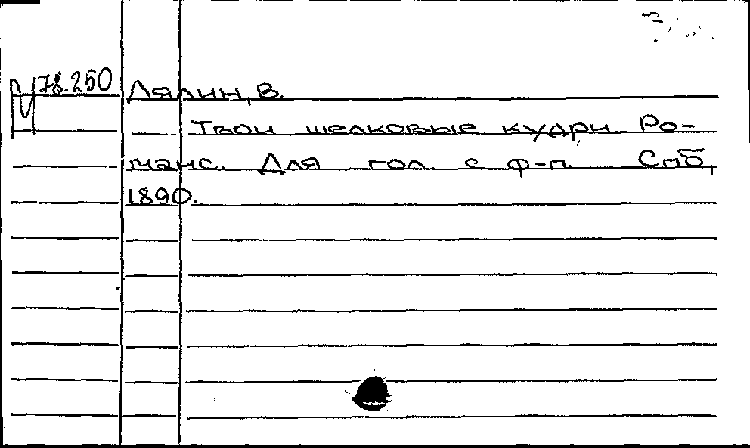 78.250 Лялин, В.
Твои шелковые кудри. Ро-
манс. Для гол. с ф-п. Спб,
1890.